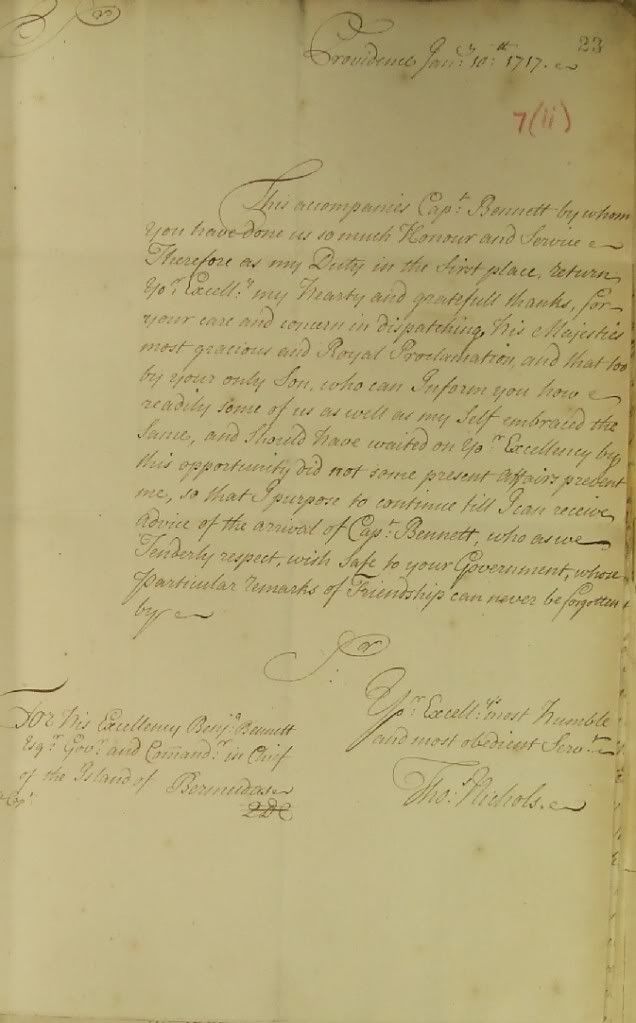 Sr
23
Providence Janry 10th 1717.
7(ii)
This accompanies Capt. Bennett by whom
you have done us so much Honour and Service
Therefore as my Duty in the first place, return
Yor. Excell:cy my hearty and gratefull thanks, for
your care and concern in dispatching his Majesties
most gracious and Royal Proclamation, and that too
by your only Son, who can Inform you how
readily some of us as well as my Self embraced the
Same, and should have waited on Yor. Excellency by
this opportunity did not some present affairs prevent
me, so that I purpose to continue till I can receive
advice of the arrival of Capt. Bennett, who as we
Tenderly respect, wish safe to your Government, whose
particular remarks of Friendship can never be forgotten
by
Sr
Yor. Excell:cys most humble
and most obedient Servt.
Tho:s Nichols.
For his Excellency Benja Bennett
Esqr. Govr. and Comandr. in Chief
of the Island of Bermudas